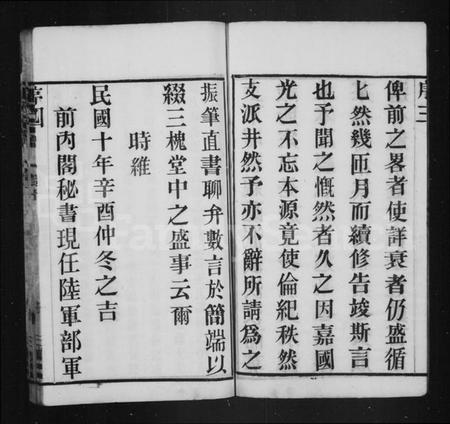 序三
俾前之畧者使詳衰者仍盛循
七然幾匝月而續修告竣斯言
也予聞之慨然者久之因嘉國
光之不忘本源竟使倫紀秩然
支派井然予亦不辭所請爲之
振筆直書聊弁數言於簡端以
綴三槐堂中之盛事云爾
時維
民國十年辛酉仲冬之吉
前內閣秘書現任陸軍部軍
序四